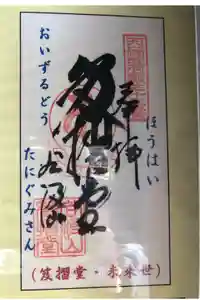 奉拝
ほうはい
笈摺堂
おいずるどう
谷汲山
たにぐみさん
(笈摺堂・未来世)